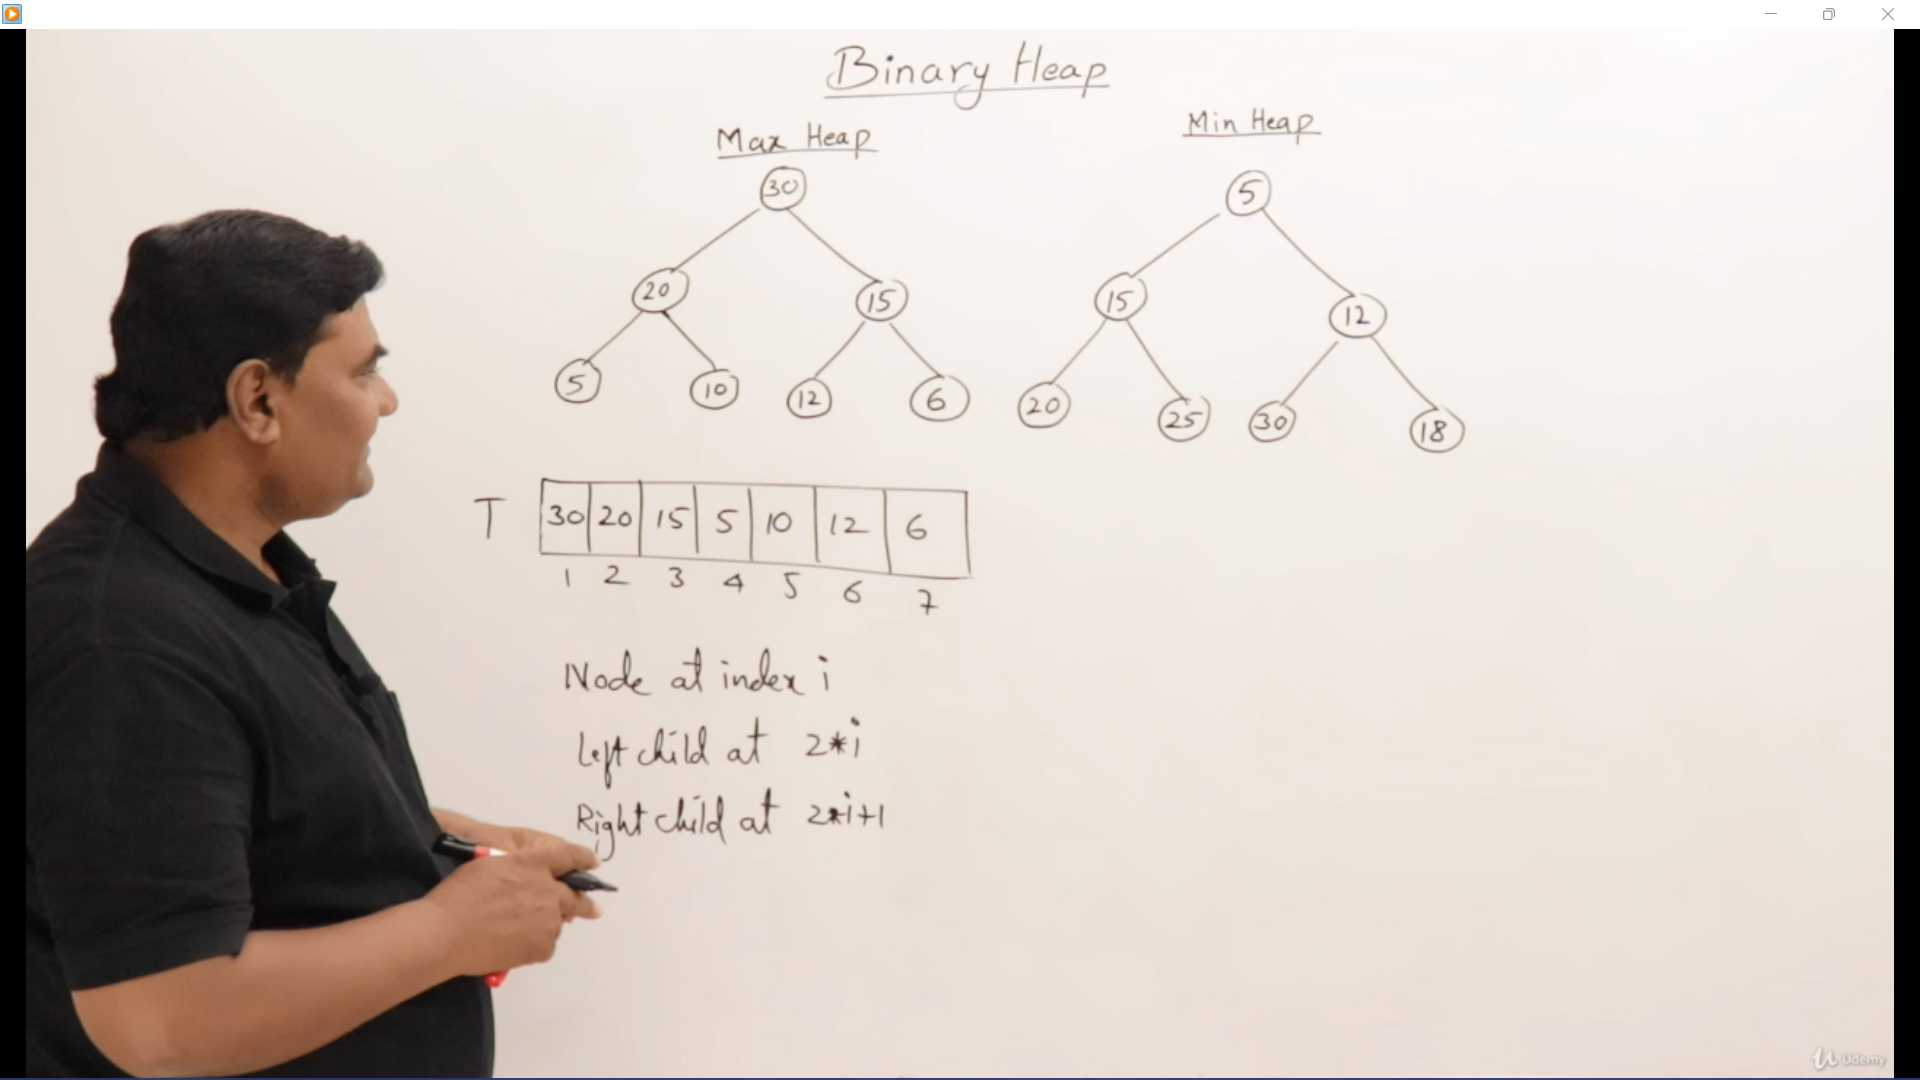 Binary Heap
Max Heap
30
20 15
5 10 12 6
Min Heap
5
15 12
20 25 30 18
T 30 20 15 5 10 12 6
1 2 3 4 5 6 7
Node at index i
Left child at 2*i
Right child at 2*i+1
Udemy